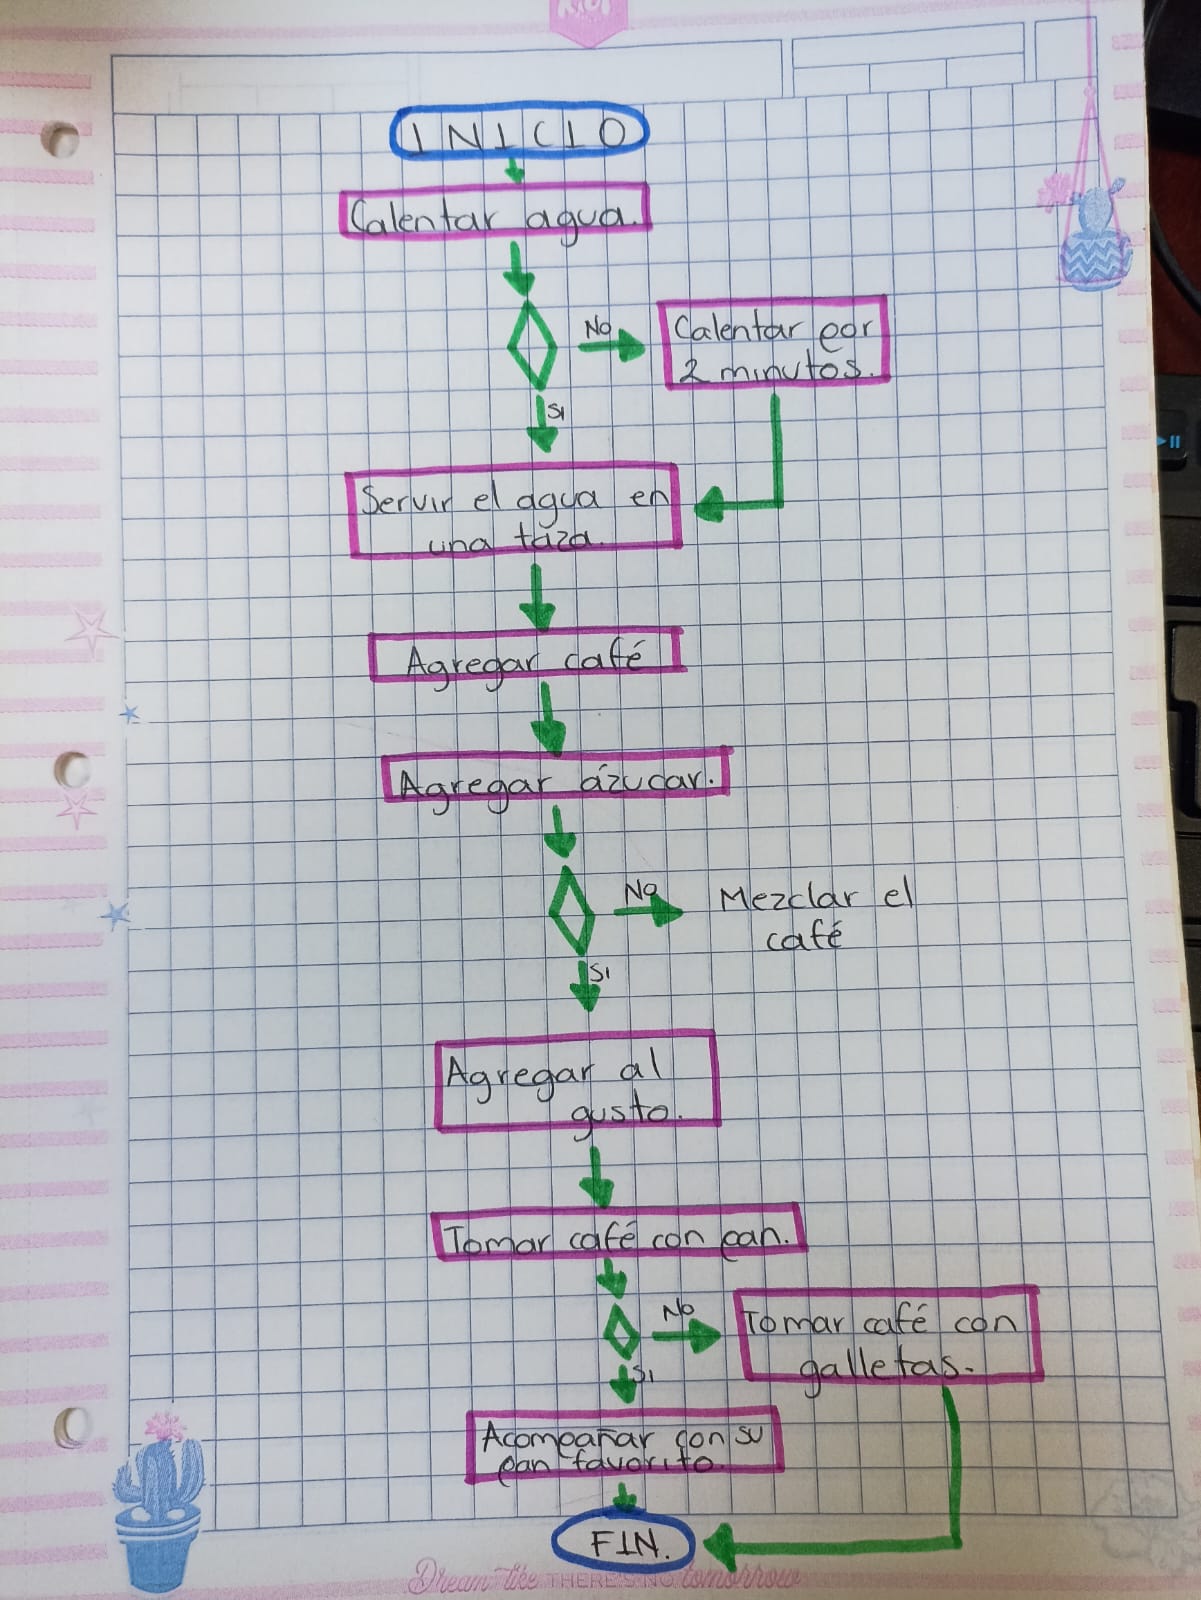 INICIO
Calentar agua.
No
Calentar por
2 minutos.
SI
Servir el agua en
una taza.
Agregar café
Agregar ázucar.
No
Mezclar el
café
SI
Agregar al
gusto.
Tomar café con pan.
No
Tomar café con
galletas.
SI
Acompañar con su
pan favorito.
FIN.
Dream like THERE'S NO tomorrow